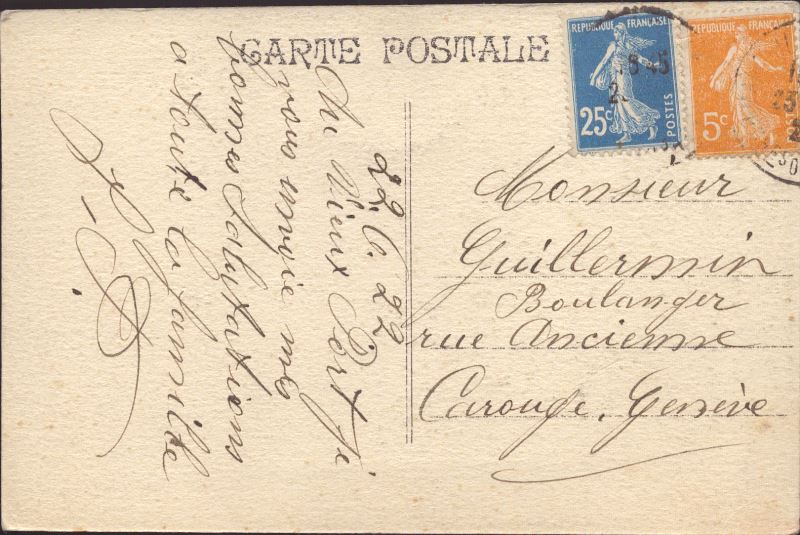 CARTE POSTALE
REPUBLIQUE FRANÇAISE
25c
POSTES
REPUBLIQUE FRANÇAISE
5c
22.6.22
Au Vieux Port je
vous envoie mes
bonnes salutations
a toute la famille
Monsieur
Guillermin
Boulanger
rue Ancienne
Carouge, Genève